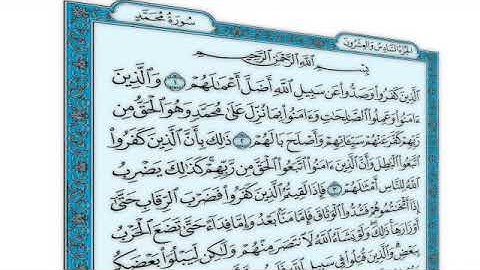 الجزء السادس والعشرون
سورة محمد
بِسْمِ اللَّهِ الرَّحْمَٰنِ الرَّحِيمِ
الَّذِينَ كَفَرُوا وَصَدُّوا عَن سَبِيلِ اللَّهِ أَضَلَّ أَعْمَٰلَهُمْ ١ وَالَّذِينَ
ءَامَنُوا وَعَمِلُوا الصَّٰلِحَٰتِ وَءَامَنُوا بِمَا نُزِّلَ عَلَىٰ مُحَمَّدٍ وَهُوَ الْحَقُّ مِن
رَّبِّهِمْ كَفَّرَ عَنْهُمْ سَيِّـَٔاتِهِمْ وَأَصْلَحَ بَالَهُمْ ٢ ذَٰلِكَ بِأَنَّ الَّذِينَ كَفَرُوا
اتَّبَعُوا الْبَٰطِلَ وَأَنَّ الَّذِينَ ءَامَنُوا اتَّبَعُوا الْحَقَّ مِن رَّبِّهِمْ كَذَٰلِكَ يَضْرِبُ
اللَّهُ لِلنَّاسِ أَمْثَٰلَهُمْ ٣ فَإِذَا لَقِيتُمُ الَّذِينَ كَفَرُوا فَضَرْبَ الرِّقَابِ حَتَّىٰ
إِذَا أَثْخَنتُمُوهُمْ فَشُدُّوا الْوَثَاقَ فَإِمَّا مَنًّا بَعْدُ وَإِمَّا فِدَاءً حَتَّىٰ تَضَعَ الْحَرْبُ
أَوْزَارَهَا ذَٰلِكَ وَلَوْ يَشَاءُ اللَّهُ لَانتَصَرَ مِنْهُمْ وَلَٰكِن لِّيَبْلُوَا بَعْضَكُم
بِبَعْضٍ وَالَّذِينَ قُتِلُوا فِي سَبِيلِ اللَّهِ